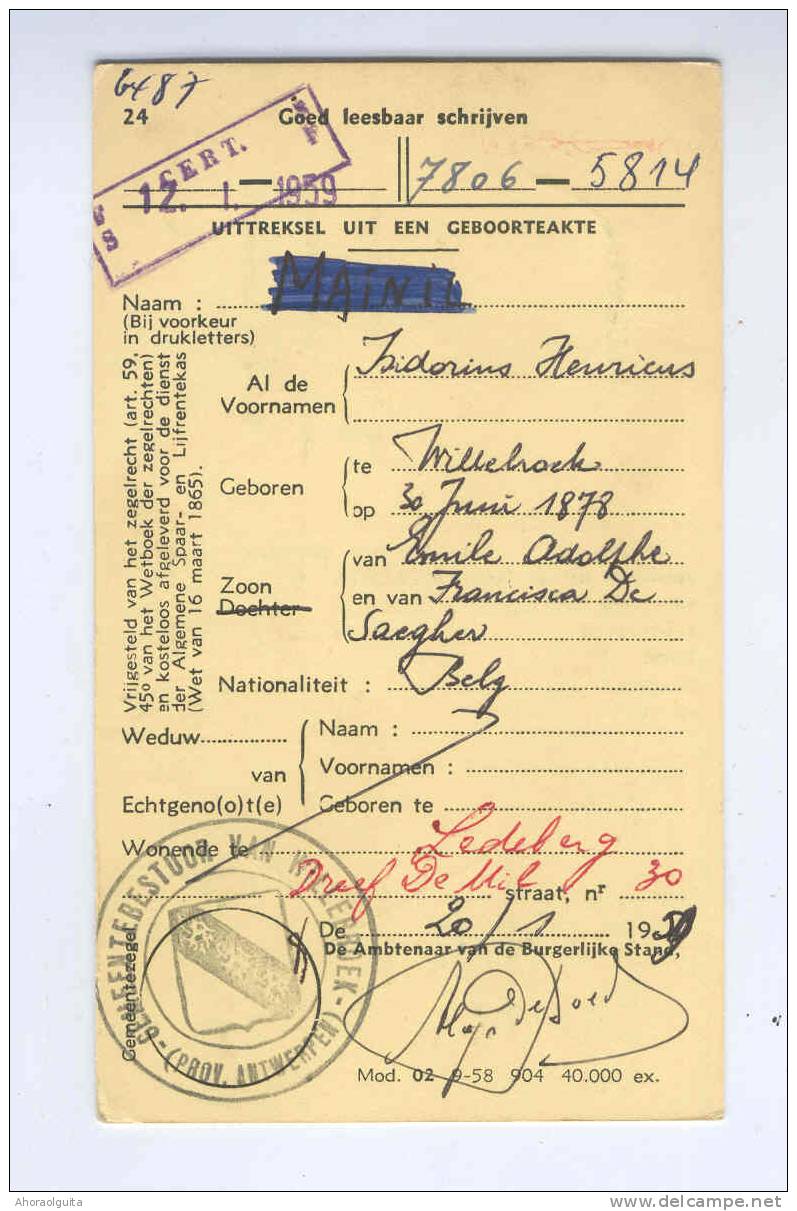 6487
24 Goed leesbaar schrijven
CERT.
12. I. 1959
7806 — 5814
UITTREKSEL UIT EEN GEBOORTEAKTE
Naam : MAINIL
(Bij voorkeur
in drukletters)
Al de
Voornamen
Isidorius Henricus
Geboren
te Willebroek
op 30 Juni 1878
Zoon
Dochter
van Emile Adolphe
en van Francisca De
Saegher
Nationaliteit : Belg
Vrijgesteld van het zegelrecht (art. 59,
45º van het Wetboek der zegelrechten)
en kosteloos afgeleverd voor de dienst
der Algemene Spaar- en Lijfrentekas
(Wet van 16 maart 1865).
Weduw
van
Echtgeno(o)t(e)
Naam :
Voornamen :
Geboren te
Wonende te Ledeberg
Dreef De Mil straat, nr 30
De 20/1 1959
De Ambtenaar van de Burgerlijke Stand,
Gemeentezegel
GEMEENTEBESTUUR VAN WILLEBROEK
-(PROV. ANTWERPEN)-
Mod. 02 9-58 904 40.000 ex.
Ahoraolguita
delcampe.net